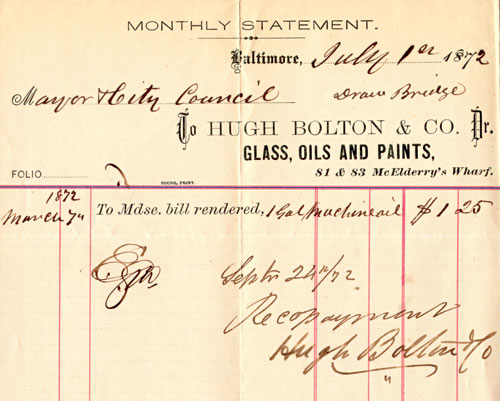 MONTHLY STATEMENT.
Baltimore, July 1st 1872
Mayor & City Council Draw Bridge
To HUGH BOLTON & CO. Dr.
GLASS, OILS AND PAINTS,
81 & 83 McElderry's Wharf.
FOLIO
YOUNG, PRINT.
1872
March 7th To Mdse. bill rendered, 1 Gal Machine oil $1 25
Septr 24th/72
Recd payment
Hugh Bolton & Co